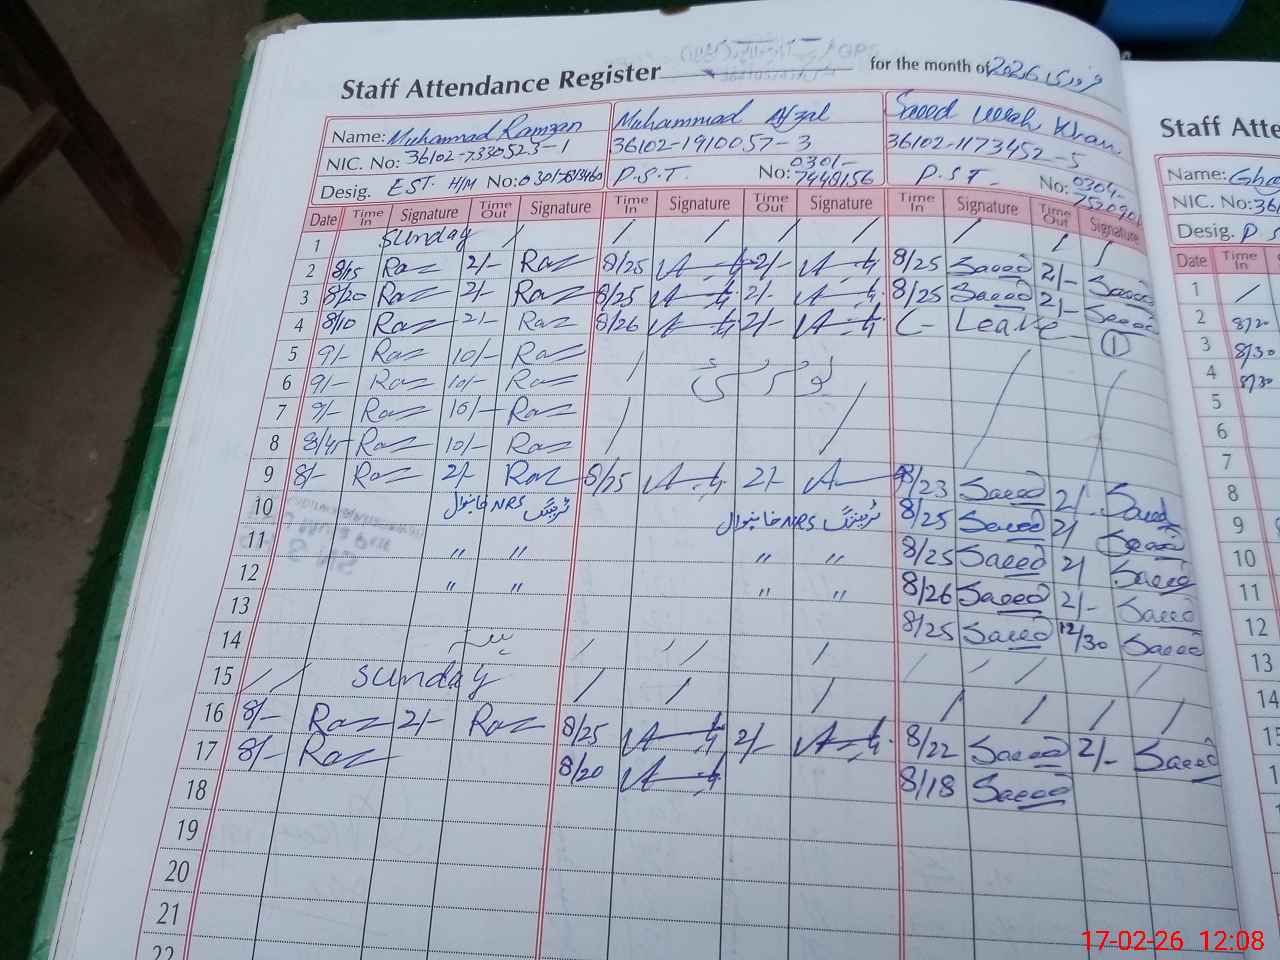 Staff Attendance Register for the month of 2026
Name: Muhammad Ramzan Muhammad Afzal Saeed Ullah Khan
NIC. No: 36102-7330523-1 36102-1910057-3 36102-1173452-5
Desig. EST. H/M No: P.S.T. No: 0301-7448156 P.S.T. No: 0304-
Date Time In Signature Time Out Signature Time In Signature Time Out Signature Time In Signature Time Out Signature
1 Sunday / / / / / / / /
2 8/15 Raz 2/- Raz 8/25 2/- 8/25 Saeed 2/- Saeed
3 8/20 Raz 2/- Raz 8/25 2/- 8/25 Saeed 2/- Saeed
4 8/10 Raz 2/- Raz 8/26 2/- C- Leave - ①
5 9/- Raz 10/- Raz
6 9/- Raz 10/- Raz /
7 9/- Raz 10/- Raz / /
8 8/45 Raz 10/- Raz
9 8/- Raz 2/- Raz 8/25 2/- 8/23 Saeed 2/ Saeed
10 ٹریننگ NRS خانیوال ٹریننگ NRS خانیوال 8/25 Saeed 2/ Saeed
11 〃 〃 〃 〃 8/25 Saeed 2/ Saeed
12 〃 〃 〃 〃 8/26 Saeed 2/- Saeed
13 8/25 Saeed 12/30 Saeed
14 / / / / / / / /
15 / / Sunday / / / / / / /
16 8/- Raz 2/- Raz 8/25 2/- 8/22 Saeed 2/- Saeed
17 8/- Raz 8/20 8/18 Saeed
18
19
20
21
22
Staff Atte
Name:
NIC. No: 36
Desig. P.S
Date Time In
1 /
2 8/20
3 8/30
4 8/30
5
6
7
8
9
10
11
12
13
14
17-02-26 12:08